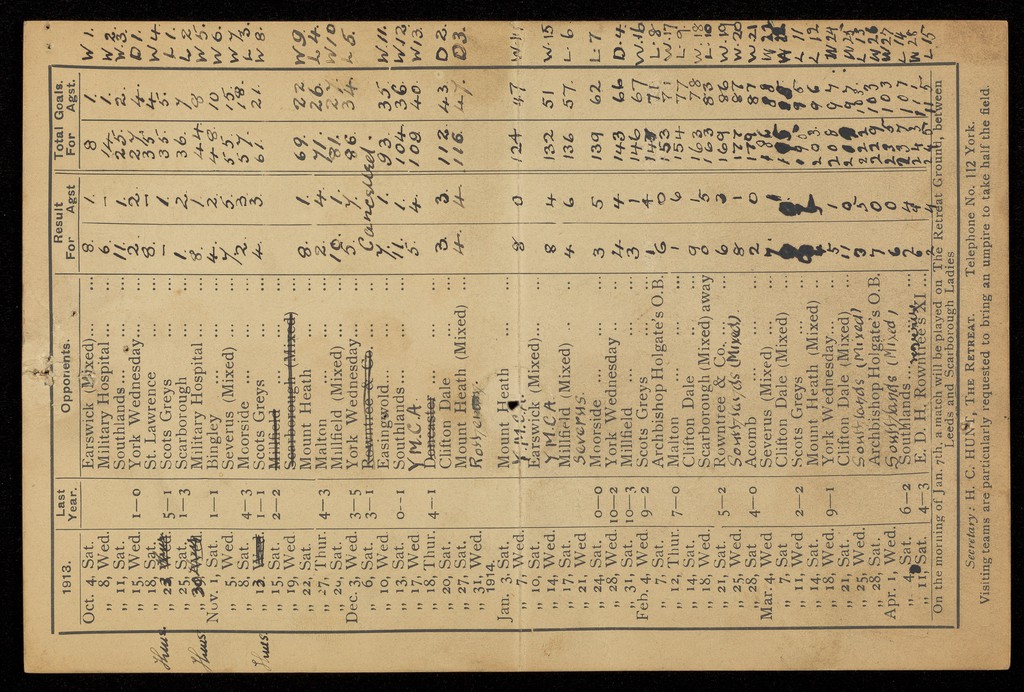 1913. Last Year. Opponents. Result For Agst Total Goals. For Agst.
Oct. 4, Sat. Earswick (Mixed)... ... 8. 1. 8 1. W 1.
,, 8, Wed. Military Hospital ... ... 6. - 14. 1. W 2.
,, 11, Sat. Southlands... ... ... 11. 1. 25. 2. W 3.
,, 15, Wed. 1—0 York Wednesday... ... 2. 2. 27. 4. D 1.
,, 18, Sat. St. Lawrence ... ... 8. - 35. 4. W 4.
Thurs. ,, 23, 5—1 Scots Greys ... ... - 1. 35. 5. L 1.
,, 25, Sat. 1—3 Scarborough ... ... 1. 2. 36. 7. L 2.
Thurs. ,, 30, Military Hospital ... ... 8. 1. 44. 8 W 5.
Nov. 1, Sat. 1—1 Bingley ... ... 4. 2. 48. 10. W 6.
,, 5, Wed. Severus (Mixed) ... ... 7. 5. 55. 15. W 7.
,, 8, Sat. 4—3 Moorside ... ... ... 2. 3. 57. 18. L 3.
Thurs. ,, 13, Wed. 1—1 Scots Greys ... ... 4. 3. 61. 21. W 8.
,, 15, Sat. 2—2 Millfield ... ... ...
,, 19, Wed Scarborough (Mixed) ...
,, 22, Sat. Mount Heath ... ... 8. 1. 69. 22 W 9.
,, 27, Thur. 4—3 Malton ... ... ... 2. 4. 71. 26. L 4.
,, 29, Sat. Millfield (Mixed) ... ... 10. 1. 81. 27. W 10
Dec. 3, Wed. 3—5 York Wednesday ... ... 5. 7. 86. 34. L 5.
,, 6, Sat. 3—1 Rowntree & Co. ... ... Cancelled.
,, 10, Wed. Easingwold... ... ... 7. 1. 93. 35. W 11.
,, 13, Sat. 0—1 Southlands... ... ... 11. 1. 104. 36. W 12.
,, 17, Wed. Y M.C.A 5. 4. 108. 40. W 13.
,, 18, Thur. 4—1 Doncaster ... ... ...
,, 20, Sat. Clifton Dale ... ... 3. 3. 112. 43 D 2.
,, 27, Sat. Mount Heath (Mixed) ... 4. 4. 116. 47. D 3.
,, 31, Wed.
1914.
Jan. 3, Sat. Mount Heath ... ... 8 0 124 47 W 14
,, 7, Wed. Y.M.C.A
,, 10, Sat. Earswick (Mixed)... ... 8 4 132 51 W. 15
,, 14, Wed. Y M.C.A 4 6 136 57. L. 6
,, 17, Sat. Millfield (Mixed)
,, 21, Wed. Severus.
,, 24, Sat. 0—0 Moorside ... ... 3 5 139 62 L 7
,, 28, Wed. 10—2 York Wednesday ... 4 4 143 66 D. 4
,, 31, Sat. 10—3 Millfield ... ... ... 3 1 146 67 W. 16
Feb. 4, Wed. 9—2 Scots Greys ... ... 1 4 147 71 L. 8
,, 7, Sat. Archbishop Holgate's O.B. 6 0 153 71 W. 17
,, 12, Thur. 7—0 Malton ... ... ... 1 6 154 77 L 9
,, 14, Sat. Clifton Dale ... ... 9
,, 18, Wed. Scarborough (Mixed) away 0 5 163 83 L. 10
,, 21, Sat. 5—2 Rowntree & Co. ... ... 6 3 169 86 W. 19
,, 25, Wed. Southlands (Mixed) 8 1 177 87 W. 20
,, 28, Sat. 4—0 Acomb ... ... ... 2 0 179 87 W 21
Mar. 4, Wed. Severus (Mixed) ... ... 7
,, 7, Sat. Clifton Dale (Mixed) ...
,, 11, Wed. 2—2 Scots Greys ... ... L 11
,, 14, Sat. Mount Heath (Mixed) ... L 12
,, 18, Wed. 9—1 York Wednesday ... ... W 24
,, 21, Sat. Clifton Dale (Mixed)
,, 25, Wed. Southlands (Mixed) L 13
,, 28, Sat. Archbishop Holgate's O.B. 7 0 W 26
Apr. 1, Wed. Southlands (Mixed) W 27
,, 4, Sat. 6—2 Southlands... L 14
,, 11, Sat. 4—3 E. D. H. Rowntree's XI ... L 15
On the morning of Jan. 7th a match will be played on The Retreat Ground, between
Leeds and Scarborough Ladies
Secretary: H. C. HUNT, THE RETREAT. Telephone No. 112 York.
Visiting teams are particularly requested to bring an umpire to take half the field.